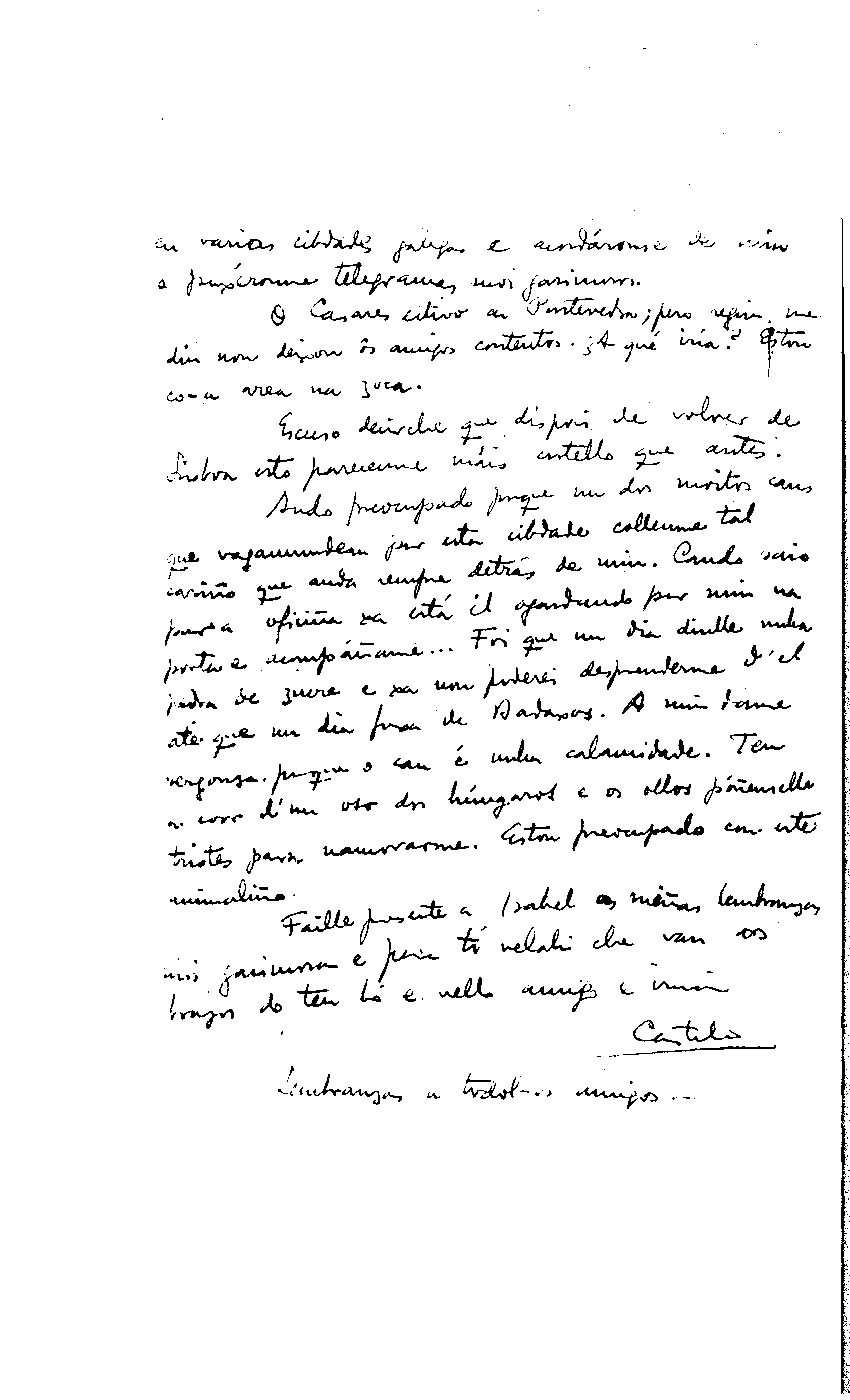 en varias cibdades galegas e acordáronse de min
e puxéronme telegramas moi garimosos.
O Casares estivo en Pontevedra; pero segun me
din non deixou ôs amigos contentos. ¿A qué iría? Estou
co-a area na zoca.
Escuso decirche que dispois de volver de
Lisboa esto pareceme máis castello que antes.
Ando preocupado porque un dos moitos cans
que vagamundean por esta cibdade colleume tal
cariño que anda sempre detrás de min. Cando saio
para a oficina xa está il agardando por min na
porta e acompáñame... Foi que un dia dinlle unha
pedra de zucre e xa non poderei desprenderme d'el
ate que un dia fuxa de Badaxos. A min dame
vergonza porque o can é unha calamidade. Ten
a cara d'un oso dos húngaros e os ollos póñenselle
tristes para namorarme. Estou preocupado con este
animaliño.
Faille presente a Isabel as miñas lembranzas
mais garimosas e para tí velahi che van os
brazos do teu bó e vello amigo e irmán
Castelao
Lembranzas a todol-os amigos.